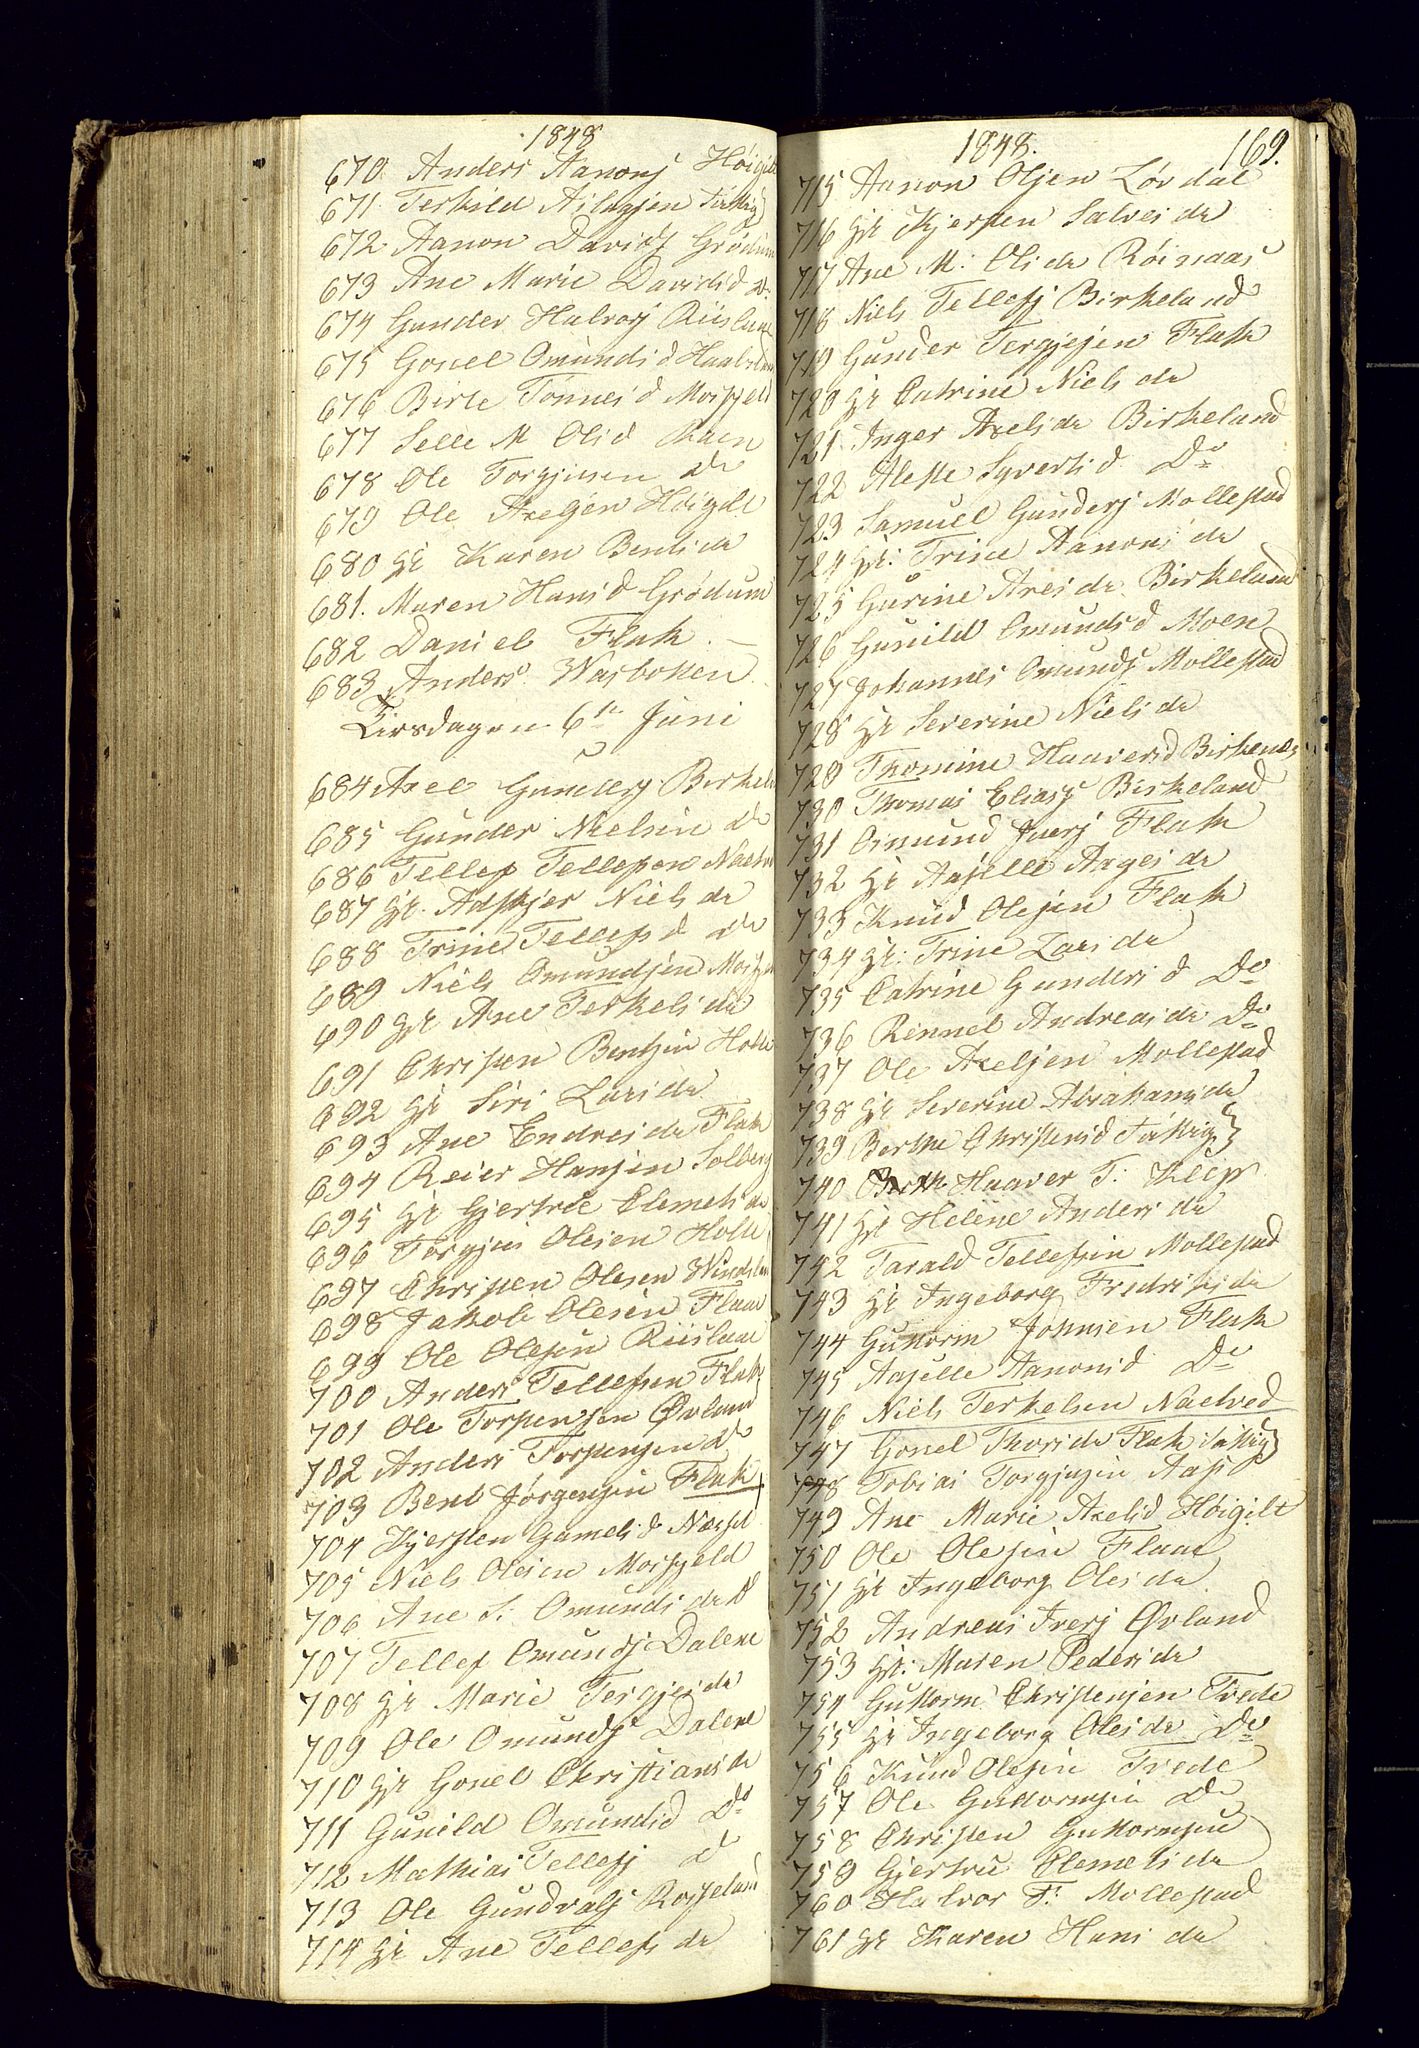 1848
670 Anders Aanonsj Höigilt
671 Terkild Ailagsen Fattig
672 Aanon Davidsj Grödum
673 Ane Marie Davidsd do
674 Gunder Halvorsj Riislaae
675 Gonel Omundsd Haabesland
676 Birte Tönnesd Mosfjeld
677 Selle M Olsd Moen
678 Ole Torgjusen do
679 Ole Axelsen Höigilt
680 Hr Karen Bentsda
681. Maren Hansd Grödum
682 Daniel Flak
683 Anders Wasbotten
Tirsdagen 6te Juni
684 Axel Gundersj Birkeland
685 Gunder Nielsen do
686 Tellef Tellefsen Natved
687 Hr. Adspjer Niels da
688 Trine Tellefsd do
689 Niels Omundsen Mosfjeld
690 Hr Ane Terkelsda
691 Christen Bentsen Holte
692 Hr Siri Larsda
693 Ane Endresda Flak
694 Reier Hansen Solberg
695 Hr Gjertrue Clemetsda
696 Torgjus Olesen Holte
697 Christen Olesen Windsland
698 Jakob Olesen Flaae
699 Ole Olesen Riislaae
700 Anders Tellefsen Flak
701 Ole Torstensen Øvland
702 Anders Torstensen do
703 Bent Jörgensen Flak
704 Kjersten Gamelsd
705 Niels Olesen Mosfjeld
706 Ane S. Omunds da do
707 Tellef Omundsj Dalene
708 Hr Marie Tergjesda
709 Ole Omundsj Dalene
710 Hr Gonel Christiansda
711 Gunild Omundsd Do
712 Mathias Tellefsj do
713 Ole Gundvalsj Rosseland
714 Hr Ane Tellefsda
1848. 169.
715 Aanon Olsen Lövdal
716 Hr Kjersten Salvesda
717 Ane M. Olsda Röinaas
718 Niels Tellefsj Birkeland
719 Gunder Tergjesen Flak
720 Hr Catrine Nielsda
721 Inger Axelsda Birkeland
722 Aleste Syvertsd Do
723 Samuel Gundersj Mollestad
724 Hr. Trine Aanons da
725 Gurine Aresda Birkeland
726 Gunild Omundsd Moen
727 Johannes Omundsj Mollestad
728 Hr Severine Nielsda
729 Thomine Haaversd Birkenes
730 Thomas Eliasj Birkeland
731 Osmund Iversj Flak
732 Hr Aaselle Aagesda
733 Knud Olesen Flak
734 Hr. Trine Larsda
735 Catrine Gundersd Do
736 Rennel Andreasda Do
737 Ole Axelsen Mollestad
738 Hr Severine Abrahamsda
739 Berthe Christensd Fattig
740 Haaver T. Klep
741 Hr Helene Andersda
742 Tarald Tellefsen Mollestad
743 Hr Ingeborg Fredriksda
744 Guttorm Johnsen Flak
745 Aaselle Aanonsd Do
746 Niels Terkelsen Natved
747 Gonel Thorsda Flak Fattig
748 Tobias Torgjusen Aas
749 Ane Marie Axelsd Höigilt
750 Ole Olesen Flaae
751 Hr Ingeborg Olesda
752 Andreas Iversj Øvland
753 Hr. Maren Pedersda
754 Guttorm Christensen Trede
755 Hr Ingeborg Olesda Do
756 Knud Olesen Trede
757 Ole Guttormsen do
758 Christen Guttormsen
759 Gjertrue Clemetsda
760 Halvor F. Mollestad
761 Hr Karen Hans da